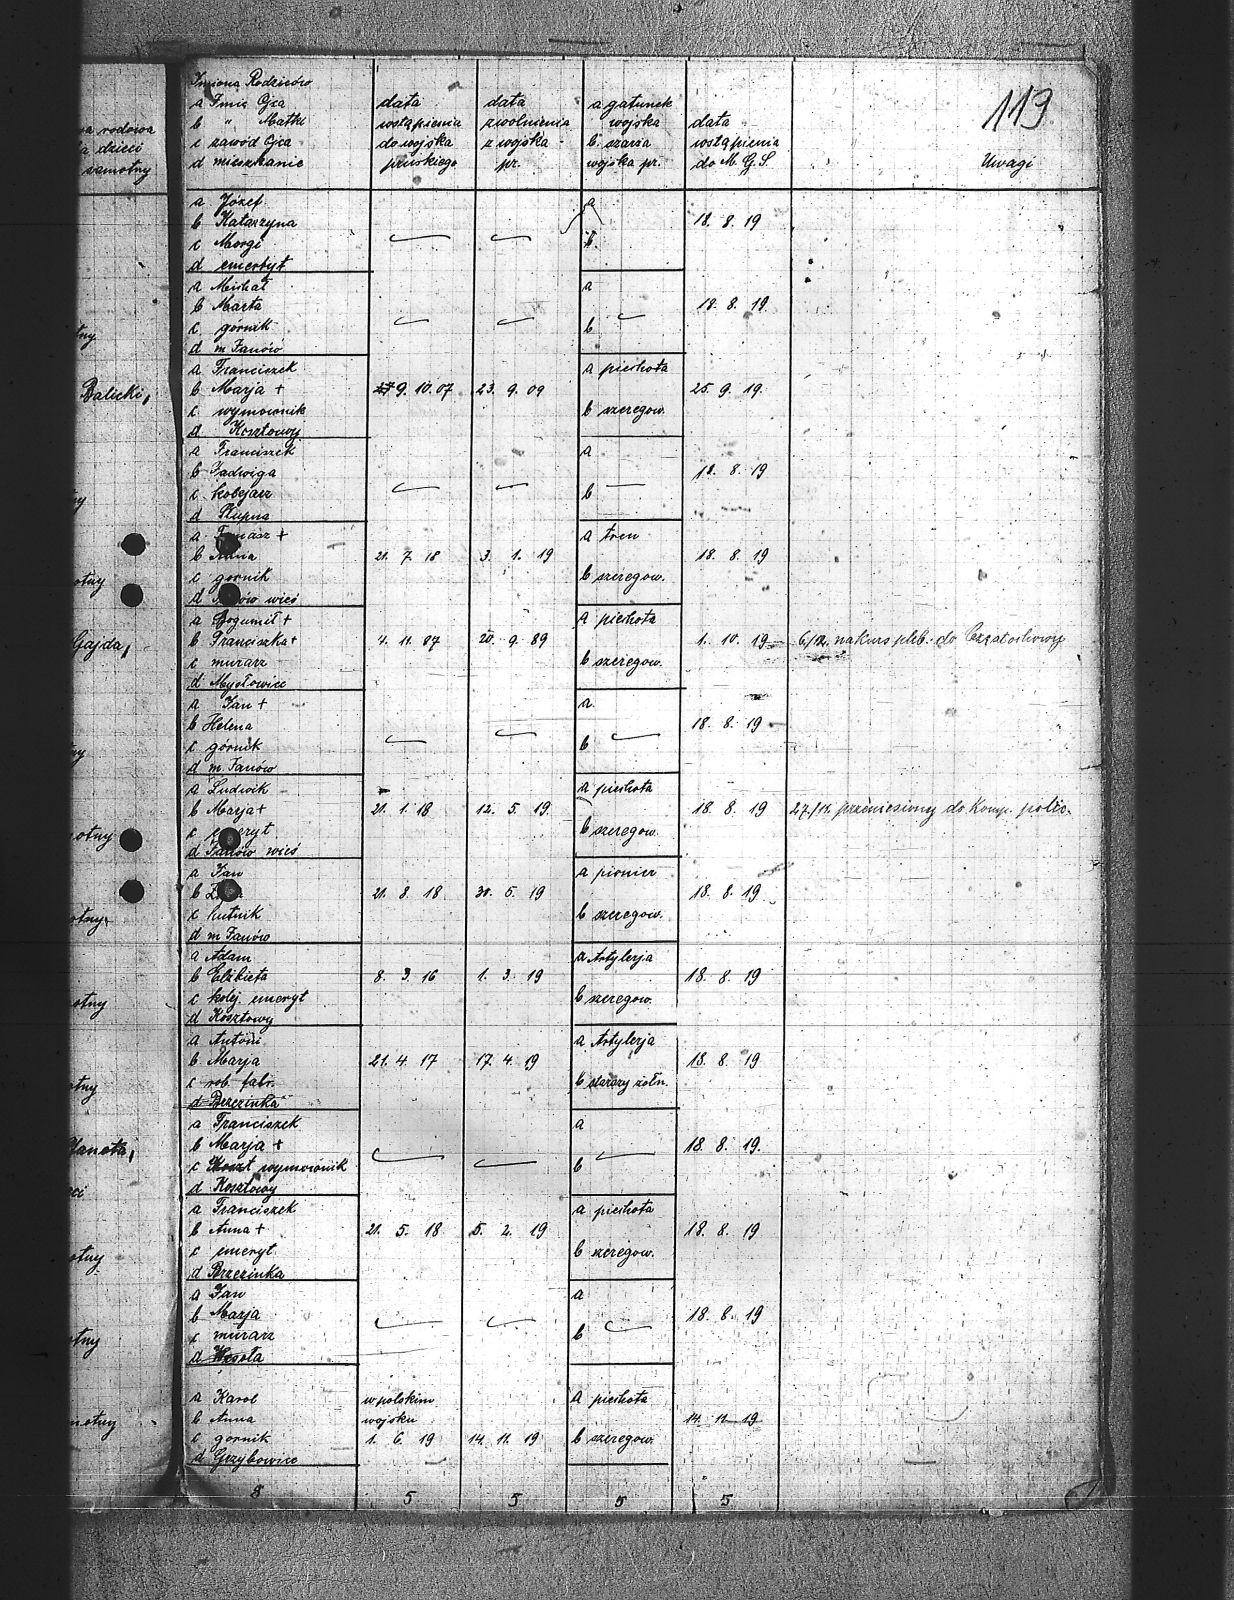 113
Imiona Rodziców
a Imię Ojca
b " Matki
c zawód Ojca
d mieszkanie
data
wstąpienia
do wojska
pruskiego
data
zwolnienia
z wojska
pr.
a gatunek
wojska
b. szarża
wojska pr.
data
wstąpienia
do M. G. S.
Uwagi
rodowa
dzieci
samotny
a Józef
b Katarzyna
c Morgi
d emeryt
a
b.
18. 8. 19
a Michał
b Marta
c górnik
d m Janów
a
b
18. 8. 19
a Franciszek
b Marja +
c wymownik
d Kosztowy
9. 10. 07
23. 9. 09
a piechota
b szeregow.
25. 9. 19.
Balicki,
a Franciszek
b Jadwiga
c kolejarz
d Słupna
a
b
18. 8. 19
a Tomasz +
b Anna
c gornik
d Janów wieś
21. 7. 18
3. 1. 19
a tren
b szeregow.
18. 8. 19
a Bogumił +
b Franciszka +
c murarz
d Mysłowice
4. 11. 07
20. 9. 09
a piechota
b szeregow.
1. 10. 19
6/12. na kurs pleb. do Częstochowy
Gajda,
a Jan +
b Helena
c górnik
d m. Janów
a
b
18. 8. 19
a Ludwik
b Marja +
c emeryt
d Janów wieś
21. 1. 18
12. 5. 19.
a piechota
b szeregow.
18. 8. 19
27./11. przeniesiony do Komp. polic.
a Jan
b
c hutnik
d m Janów
21. 8. 18
30. 5. 19
a pionier
b szeregow.
18. 8. 19
a Adam
b Elżbieta
c kolej. emeryt
d Kosztowy
8. 3. 16
1. 3. 19
a Artylerja
b szeregow.
18. 8. 19
a Antoni
b Marja
c rob. fabr.
d Brzezinka
21. 4. 17
17. 4. 19
a Artylerja
b starszy żołn.
18. 8. 19
a Franciszek
b Marja +
c wymownik
d Kosztowy
a
b
18. 8. 19.
a Franciszek
b Anna +
c emeryt
d Brzezinka
21. 5. 18
5. 2. 19
a piechota
b szeregow.
18. 8. 19
a Jan
b Marja
c murarz
d Wesoła
a
b
18. 8. 19
a Karol
b Anna
c gornik
d Grzybowice
w polskim
wojsku
1. 6. 19
14. 11. 19
a piechota
b szeregow.
14. 11. 19
8 5 5 5 5